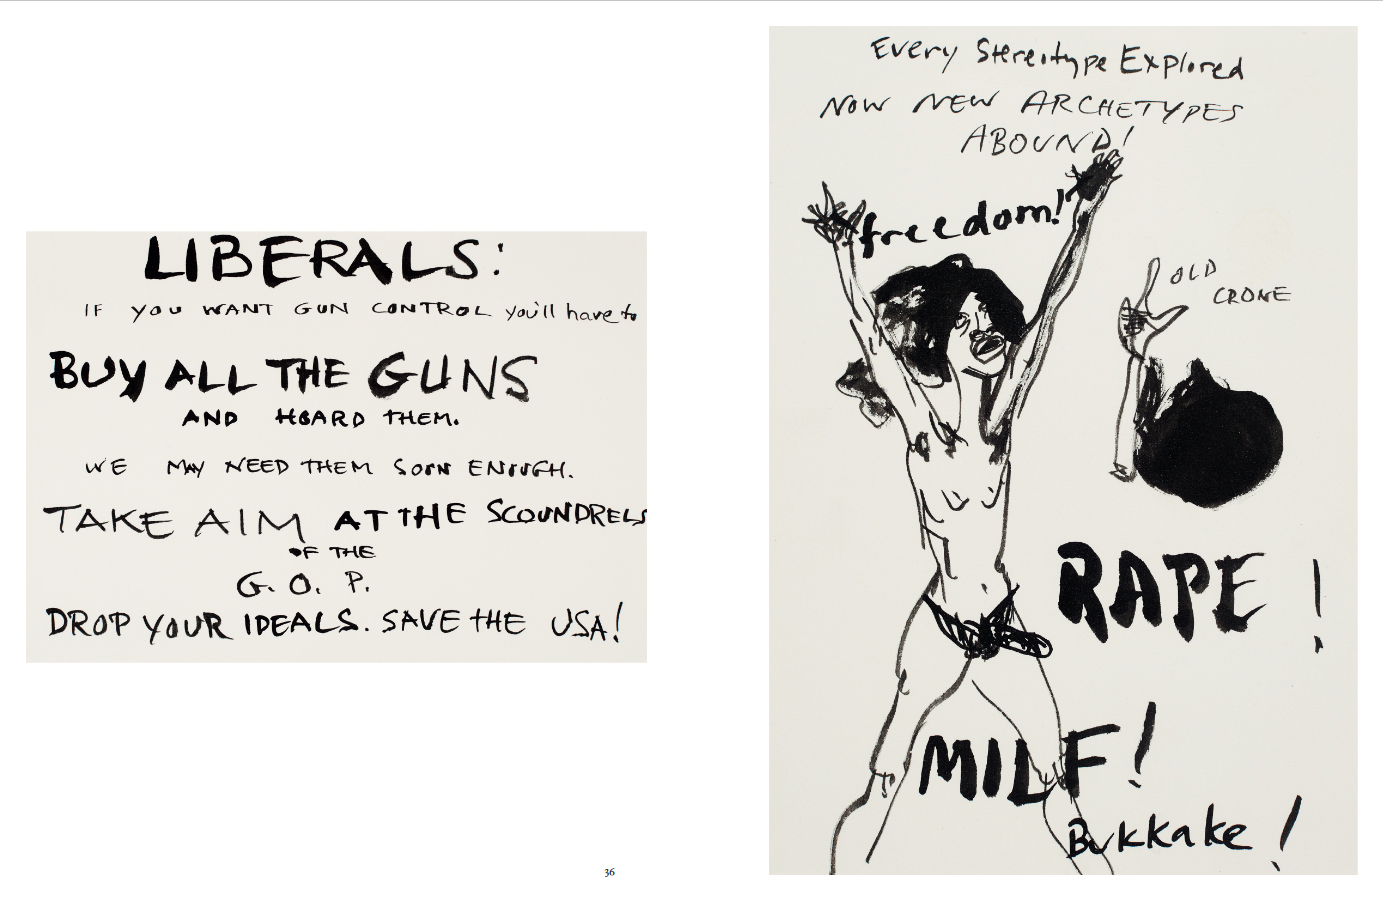 LIBERALS:
IF YOU WANT GUN CONTROL you'll have to
BUY ALL THE GUNS
AND HOARD THEM.
WE MAY NEED THEM SOON ENOUGH.
TAKE AIM AT THE SCOUNDRELS
OF THE
G. O. P.
DROP YOUR IDEALS. SAVE THE USA!
36
Every Stereotype Explored
NOW NEW ARCHETYPES
ABOUND!
freedom!
OLD
CRONE
RAPE!
MILF!
Bukkake!